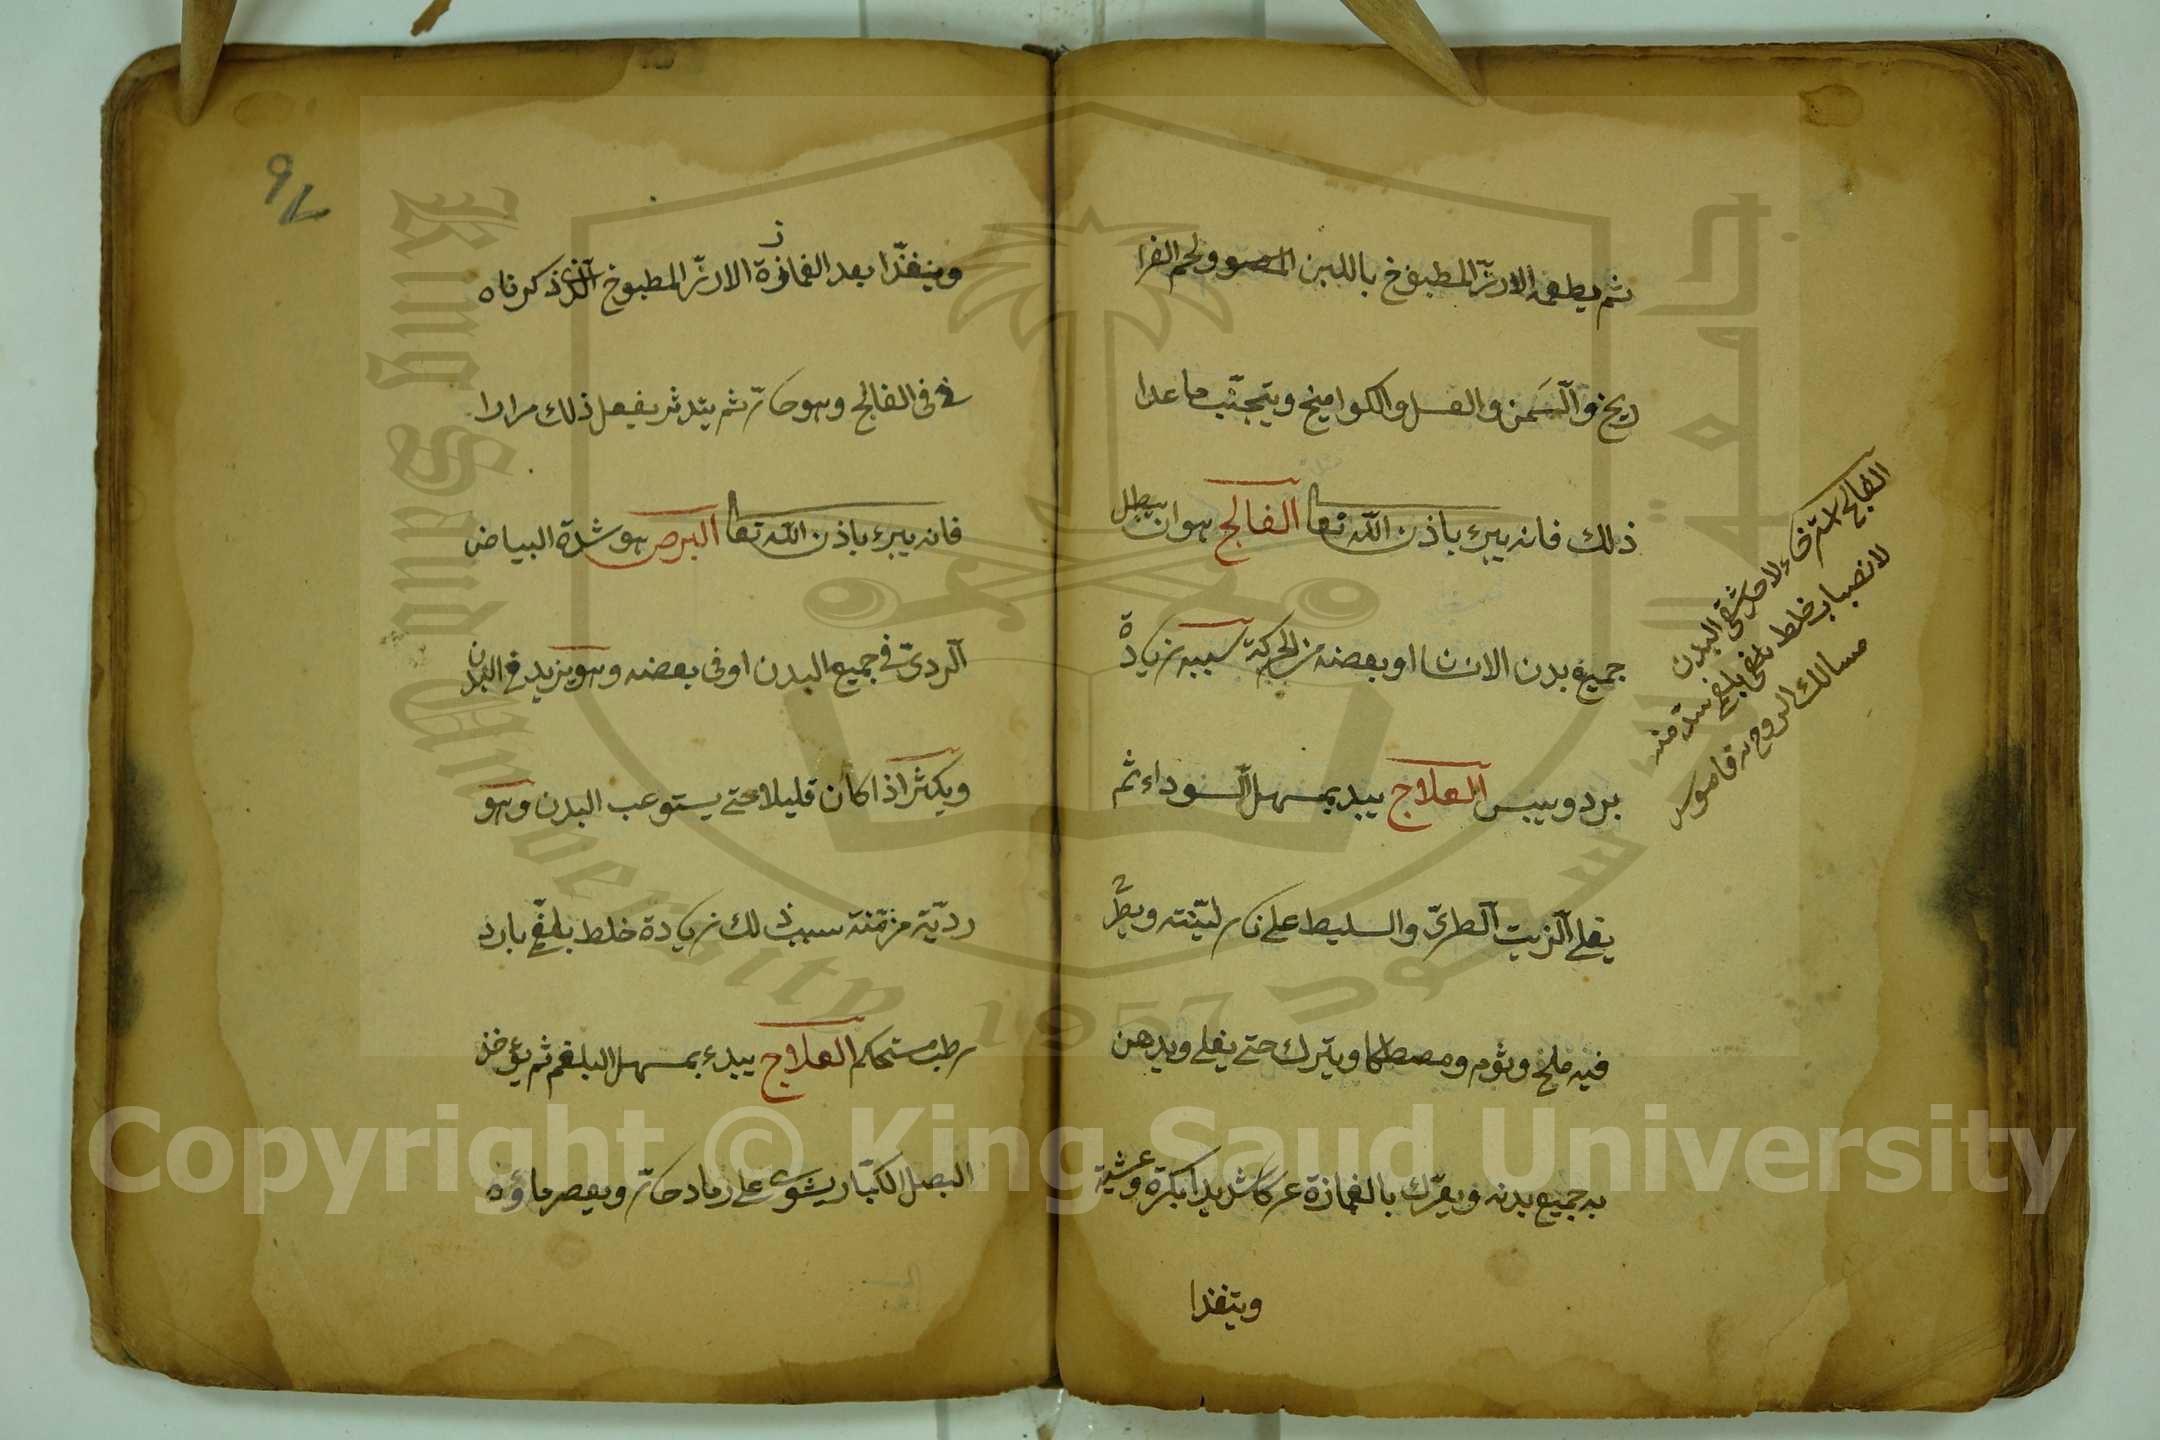 ثم يطعم الارز المطبوخ باللبن ولحم الفرا
ريج والسمن والعسل والكوامخ ويتجنب ما عدا
ذلك فانه يبرء باذن الله تعا الفالج هو ان يبطل
جميع بدن الانسا او بعضه من الحركة سببه زيادة
برد ويبس العلاج يبدء بمسهل السوداء ثم
يغلي الزيت الطري والسليط على نار لينة ويطرح
فيه ملح وثوم ومصطكا ويترك حتى يغلي ويدهن
به جميع بدنه ويعرك بالغمازة عركا شديدا بكرة وعشية
ويتغذا
الفالج استرخاء لاحد شقي البدن
لانصباب خلط بلغمي تنسد منه
مسالك الروح قاموس
٩٦
ويتغذا بعد الغمازة الارز المطبوخ الذي ذكرناه
في الفالج وهو حار ثم يتدثر يفعل ذلك مرارا
فانه يبرء باذن الله تعا البرص هو شدة البياض
الردي في جميع البدن او في بعضه وهو يزيد في البدن
ويكثر اذا كان قليلا حتى يستوعب البدن وهو
ردية مزمنة سبب ذلك زيادة خلط بلغمي بارد
رطب مستحكم العلاج يبدء بمسهل البلغم ثم يؤخذ
البصل الكبار يشوى على رماد حار ويعصر ماؤه
King Saud University
1957
Copyright © King Saud University